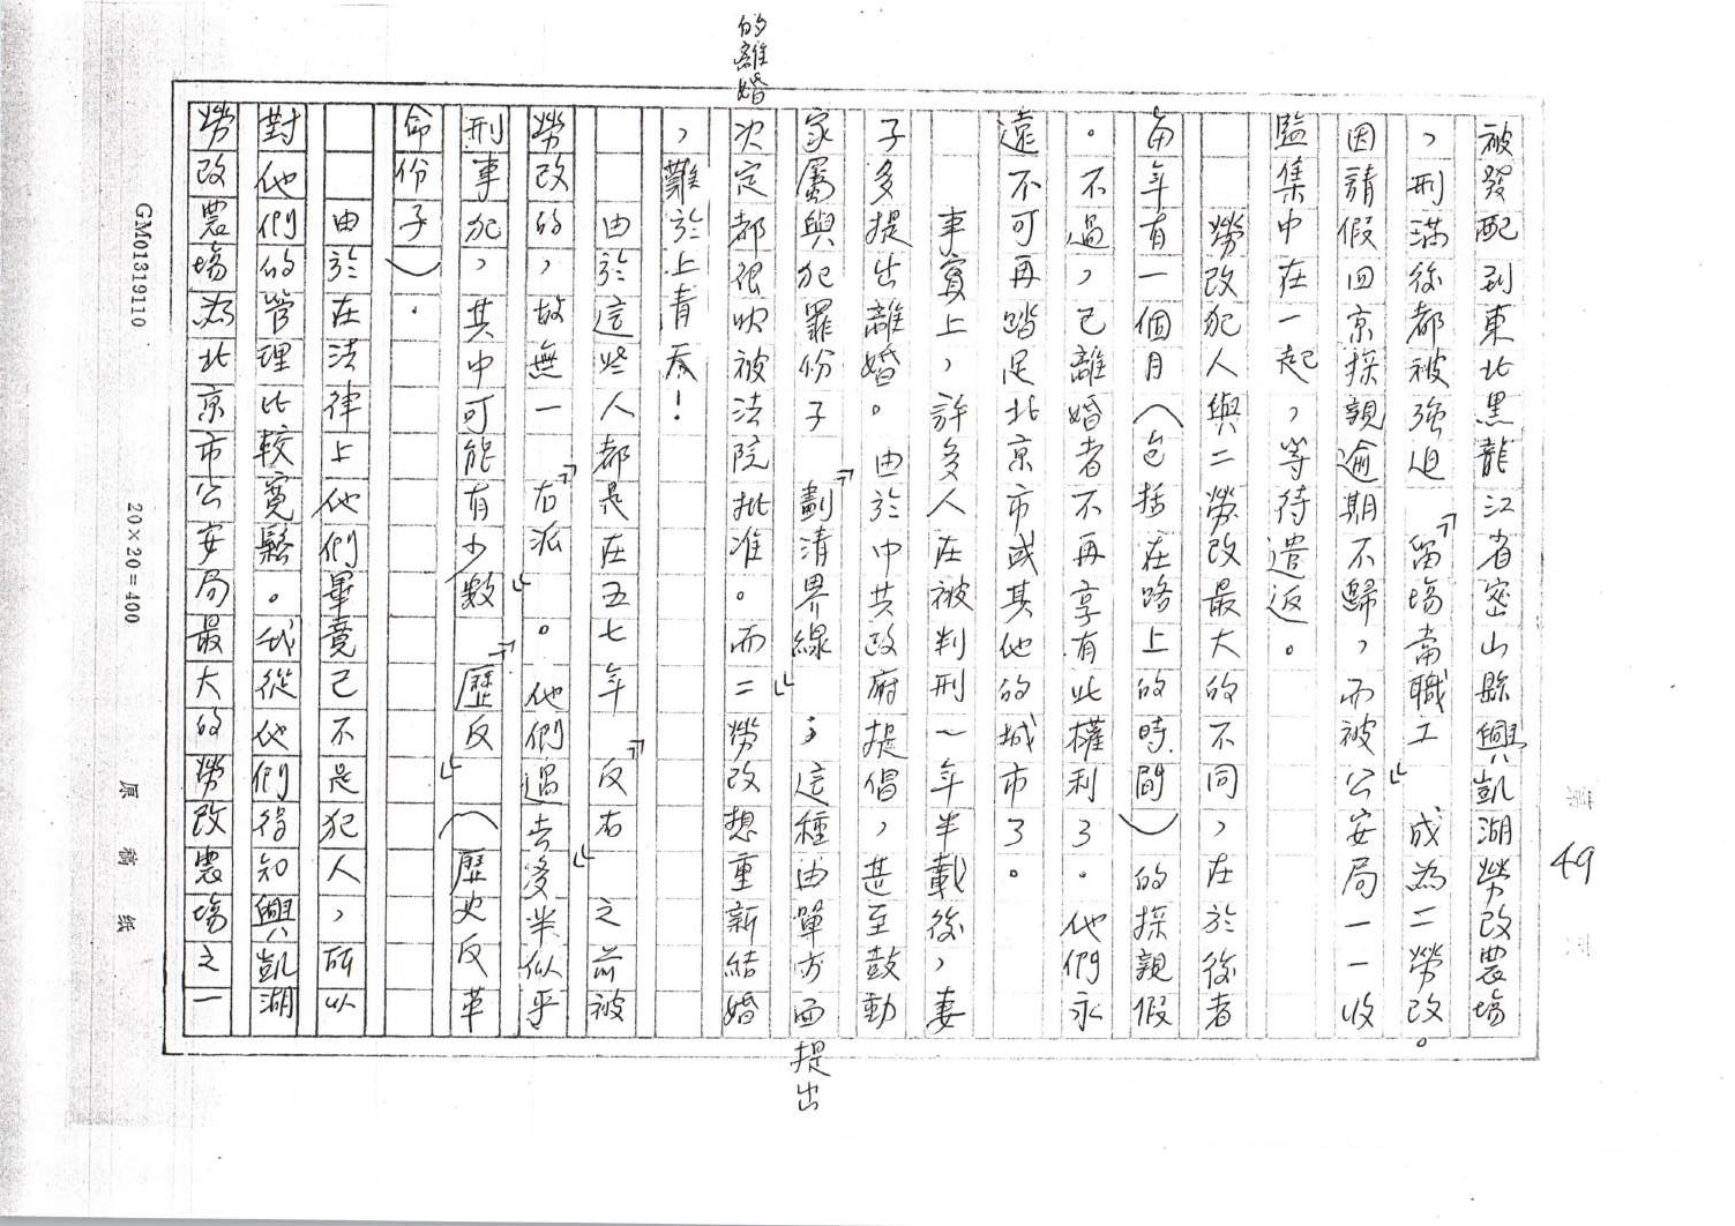 第 49 頁
被發配到東北黑龍江省密山縣興凱湖勞改農場
，刑滿後都被強迫『留場當職工』成為二勞改。
因請假回京探親逾期不歸，而被公安局一一收
監集中在一起，等待遣返。
勞改犯人與二勞改最大的不同，在於後者
每年有一個月（包括在路上的時間）的探親假
。不過，已離婚者不再享有此權利了．他們永
遠不可再踏足北京市或其他的城市了。
事實上，許多人在被判刑一年半載後，妻
子多提出離婚。由於中共政府提倡，甚至鼓動
家屬與犯罪份子『劃清界線』，這種由單方面提出
的離婚次定都很快被法院批准。而二勞改想重新結婚
，難於上青天！
由於這些人都是在五七年『反右』之前被
勞改的，故無一『右派』。他們過去多半似乎
刑事犯，其中可能有少數『歷反』（歷史反革
命份子）．
由於在法律上他們畢竟已不是犯人，所以
對他們的管理比較寬鬆。我從他們得知興凱湖
勞改農場為北京市公安局最大的勞改農場之一
GM01319110
20×20=400
原稿紙